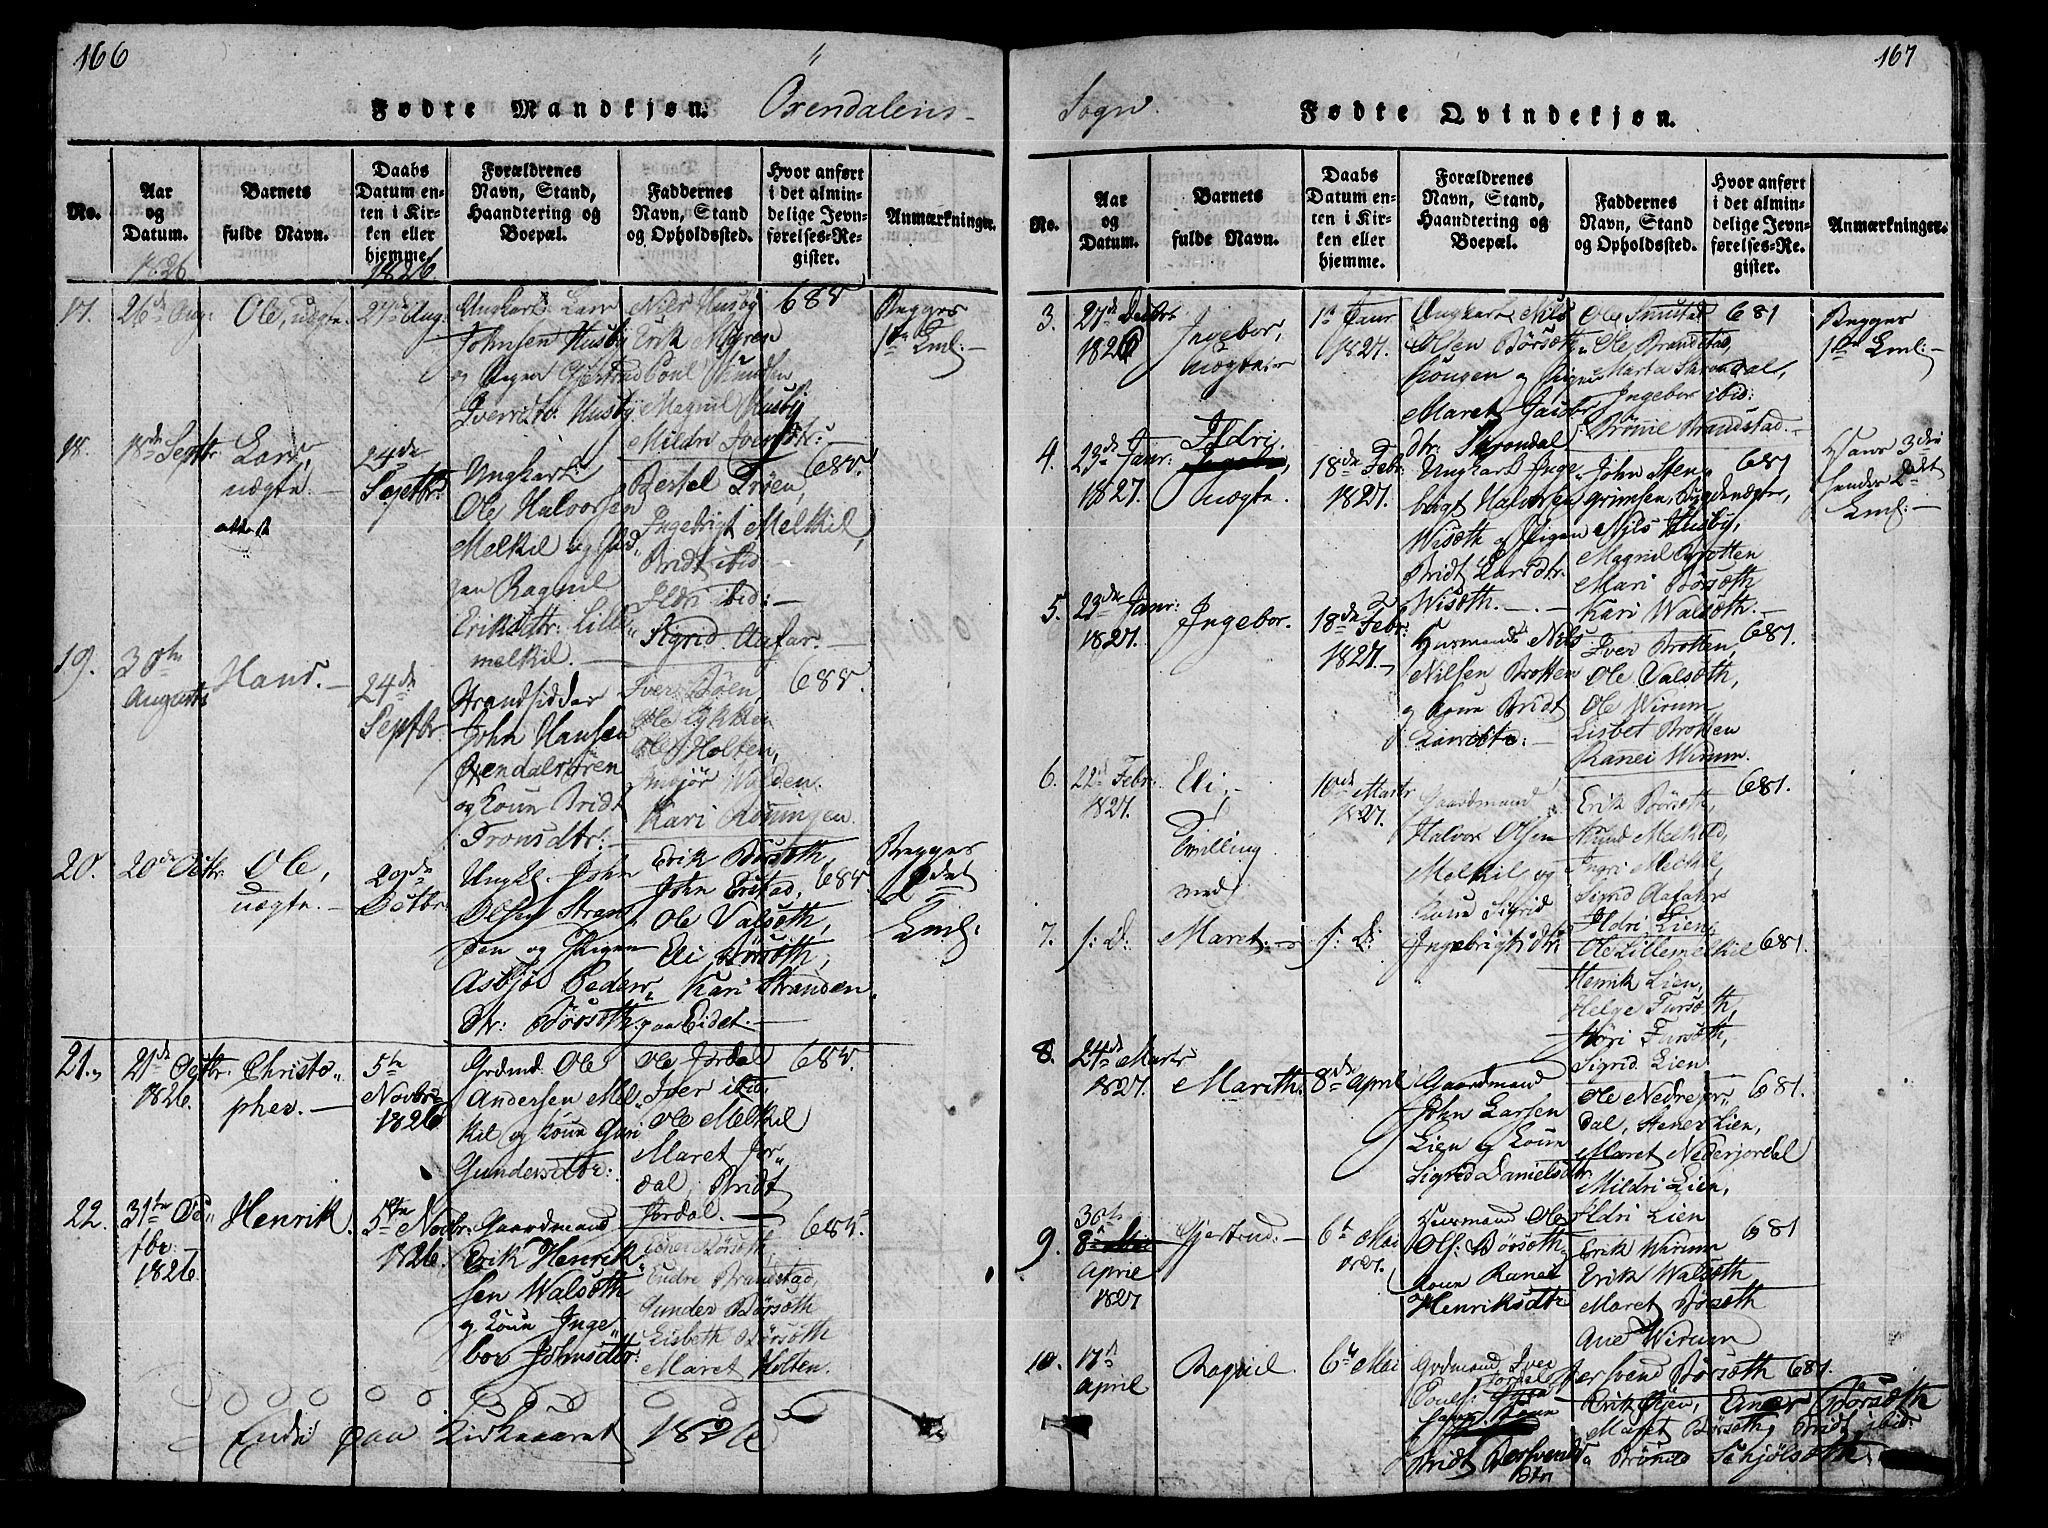 166
Fødte Mandkjøn.
Örendalens
No.
Aar
og
Datum.
Barnets
fulde Navn.
Daabs
Datum en-
ten i Kir-
ken eller
hjemme.
Forældrenes
Navn, Stand,
Haandtering og
Boepæl.
Faddernes
Navn, Stand
og Opholdssted.
Hvor anført
i det almin-
delige Jevn-
førelses-Re-
gister.
Anmærkninger.
1826
1826
17.
26de Aug:
Ole, uægte.
27de Aug:
Ungkarl Lars
Johnsen Husby
og Pigen
Iversdtr: Husby.
Niels Husby
Erik Myren
Poul Knudsen
Magnil Husby
Mildri Iversdtr: —
688
Begges
1te Leml: —
18.
18de Septbr
Lars,
uægte. —
24de
Septbr.
Ungkarl
Ole Halvorsen
Melkil og Pi-
gen Ragnil
Eriksdtr: Lille
melkil. —
Bertel Trøen,
Ingebrigt Melkil,
Bridt ibid
Ildri ibid: —
Sigrid Aafar. —
688.
19.
30te
Augusti
Hans. —
24de
Septbr.
Strandsidder
John Hansen
Ørendalsøren
og Koun Bridt
Tronsdtr: —
Iver Bøen,
Ole Lykken
Ole Holten,
Walden.
Kari Røningen.
688.
20.
20de Octbr.
Ole,
uægte. —
29de
Octbr.
Ungkl. John
Olsen Stran
den og Pigen
Asbjør Peders
dtr: Børsøth.
Erik Børsøth,
John Eristad,
Ole Valsøth,
Eli Børsøth,
Kari Stranden
paa Eidet. —
688.
Begges
2det
Leml:
21.
21de Octbr.
1826.
Christo-
pher. —
5te
Novbr.
1826
Grdmd. Ole
Andersen Mel-
kil og Koun Guri
Gundersdtr:
Ole Jordal
Iver ibid.
Ole Melkil
Maret Jor-
dal, Bridt
Jordal. —
688.
22.
31te Oc-
tbr.
1826.
Henrik.
5te Novbr.
1826.
Gaardmand
Erik Henrik-
sen Walsøth
og Koun Inge-
bor Johnsdtr:
Børsøth,
Endre Brandstad,
Gunder Børsøth
Lisbeth Børsøth
Maret Holten.
688.
Ende paa Kirkeaaret 1826
167
Sogn.
Fødte Qvindekjøn.
No.
Aar
og
Datum.
Barnets
fulde Navn.
Daabs
Datum en-
ten i Kir-
ken eller
hjemme.
Forældrenes
Navn, Stand,
Haandtering og
Boepæl.
Faddernes
Navn, Stand
og Opholdssted.
Hvor anført
i det almin-
delige Jevn-
førelses-Re-
gister.
Anmærkninger.
3.
27de Decbr
1826
Ingebor,
uægte. —
1te Janr
1827.
Ungkarl Nils
Olsen Børsøth-
hougen og Pigen
Maret Jacobs-
dtr. Skrondal
Ole Snustad
Ole Brandstad,
Marta Skrondal,
Ingebor ibid:
Brønil Brandstad. —
681
Begges
1te Leml: —
4.
23de Janr:
1827.
Ildri.
uægte.
18de Febr.
1827.
Ungkarl Inge-
brigt Halvorsen
Wisøth og Pigen
Bridt Larsdtr.
Wisøth. — . —
John Sten-
grimsen, Bygdevægter,
Nils Husby,
Magnil Brotten
Mari Børsøth
Kari Walsøth. —
681
Hans 3die
hendes 2det
Leml: —
5.
23de Janr:
1827.
Ingebor.
18de Febr:
1827. —
Husmand Nils
Nilsen Brotten
og Koun Bridt
Larsdtr: —
Iver Brotten,
Ole Valsøth,
Ole Wirum
Lisbet Brotten
Ranei Wirum.
681.
6.
22de Febr:
1827.
Eli, —
Tvilling
med
10de Marts
1827.
Gaardmand
Halvor Olsen
Melkil og
Koun Sigrid
Erik Børsøth,
Melkild,
Ingri Melkil,
Sigrid Aafahr
Ildri Lien,
681.
7.
s: D:
Maret: —
s: D:
Ingebrigtsdtr:
Ole Lillemelkil
Henrik Lien,
Helge Fursøth,
Guri Fursøth,
Sigrid Lien
681.
8.
24de Marts
1827.
Marith.
8de April
Gaardmand
John Larsen
Lien og Koun
Sigrid Danielsdtr
Ole Nedrejor-
dal, Stener Lien,
Maret Nederjordal
Mildri Lien,
Ildri Lien
681.
9.
30te
April
1827
Gjertrud. —
6te Mai
1827.
Husmand Ole
Ols: Børsøth
Koun Ranei
Henriksdtr
Erik Wirum
Erik Walsøth
Maret Børsøth
Ane Wirum
681
10.
17de
April
Ragnil.
6te Mai
Grdmand Iver
Pouls: Jordal
Koun
Bridt Bersvends
dtr
Bersvend Børsøth
Erik Øyen, Einer Børsøth
Maret Børsøth, Bridt ibid.
Brønild Schjølsøth
681.